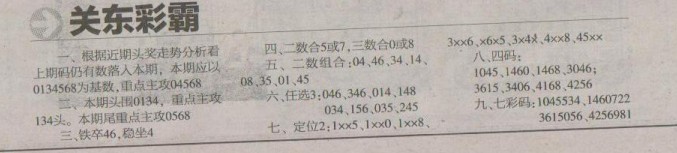 关东彩霸
一、根据近期头奖走势分析看
上期码仍有数落入本期，本期应以
0134568为基数，重点主攻04568
二、本期头围0134，重点主攻
134头。本期尾重点主攻0568
三、铁卒46，稳坐4
四、二数合5或7，三数合0或8
五、二数组合：04、46、34、14、
08、35、01、45
六、任选3：046、346、014、148
034、156、035、245
七、定位2：1××5、1××0、1××8、
3××6、×6×5、3×4×、4××8、45××
八、四码：
1045、1460、1468、3046；
3615、3406、4168、4256
九、七彩码：1045534、1460722
3615056、4256981